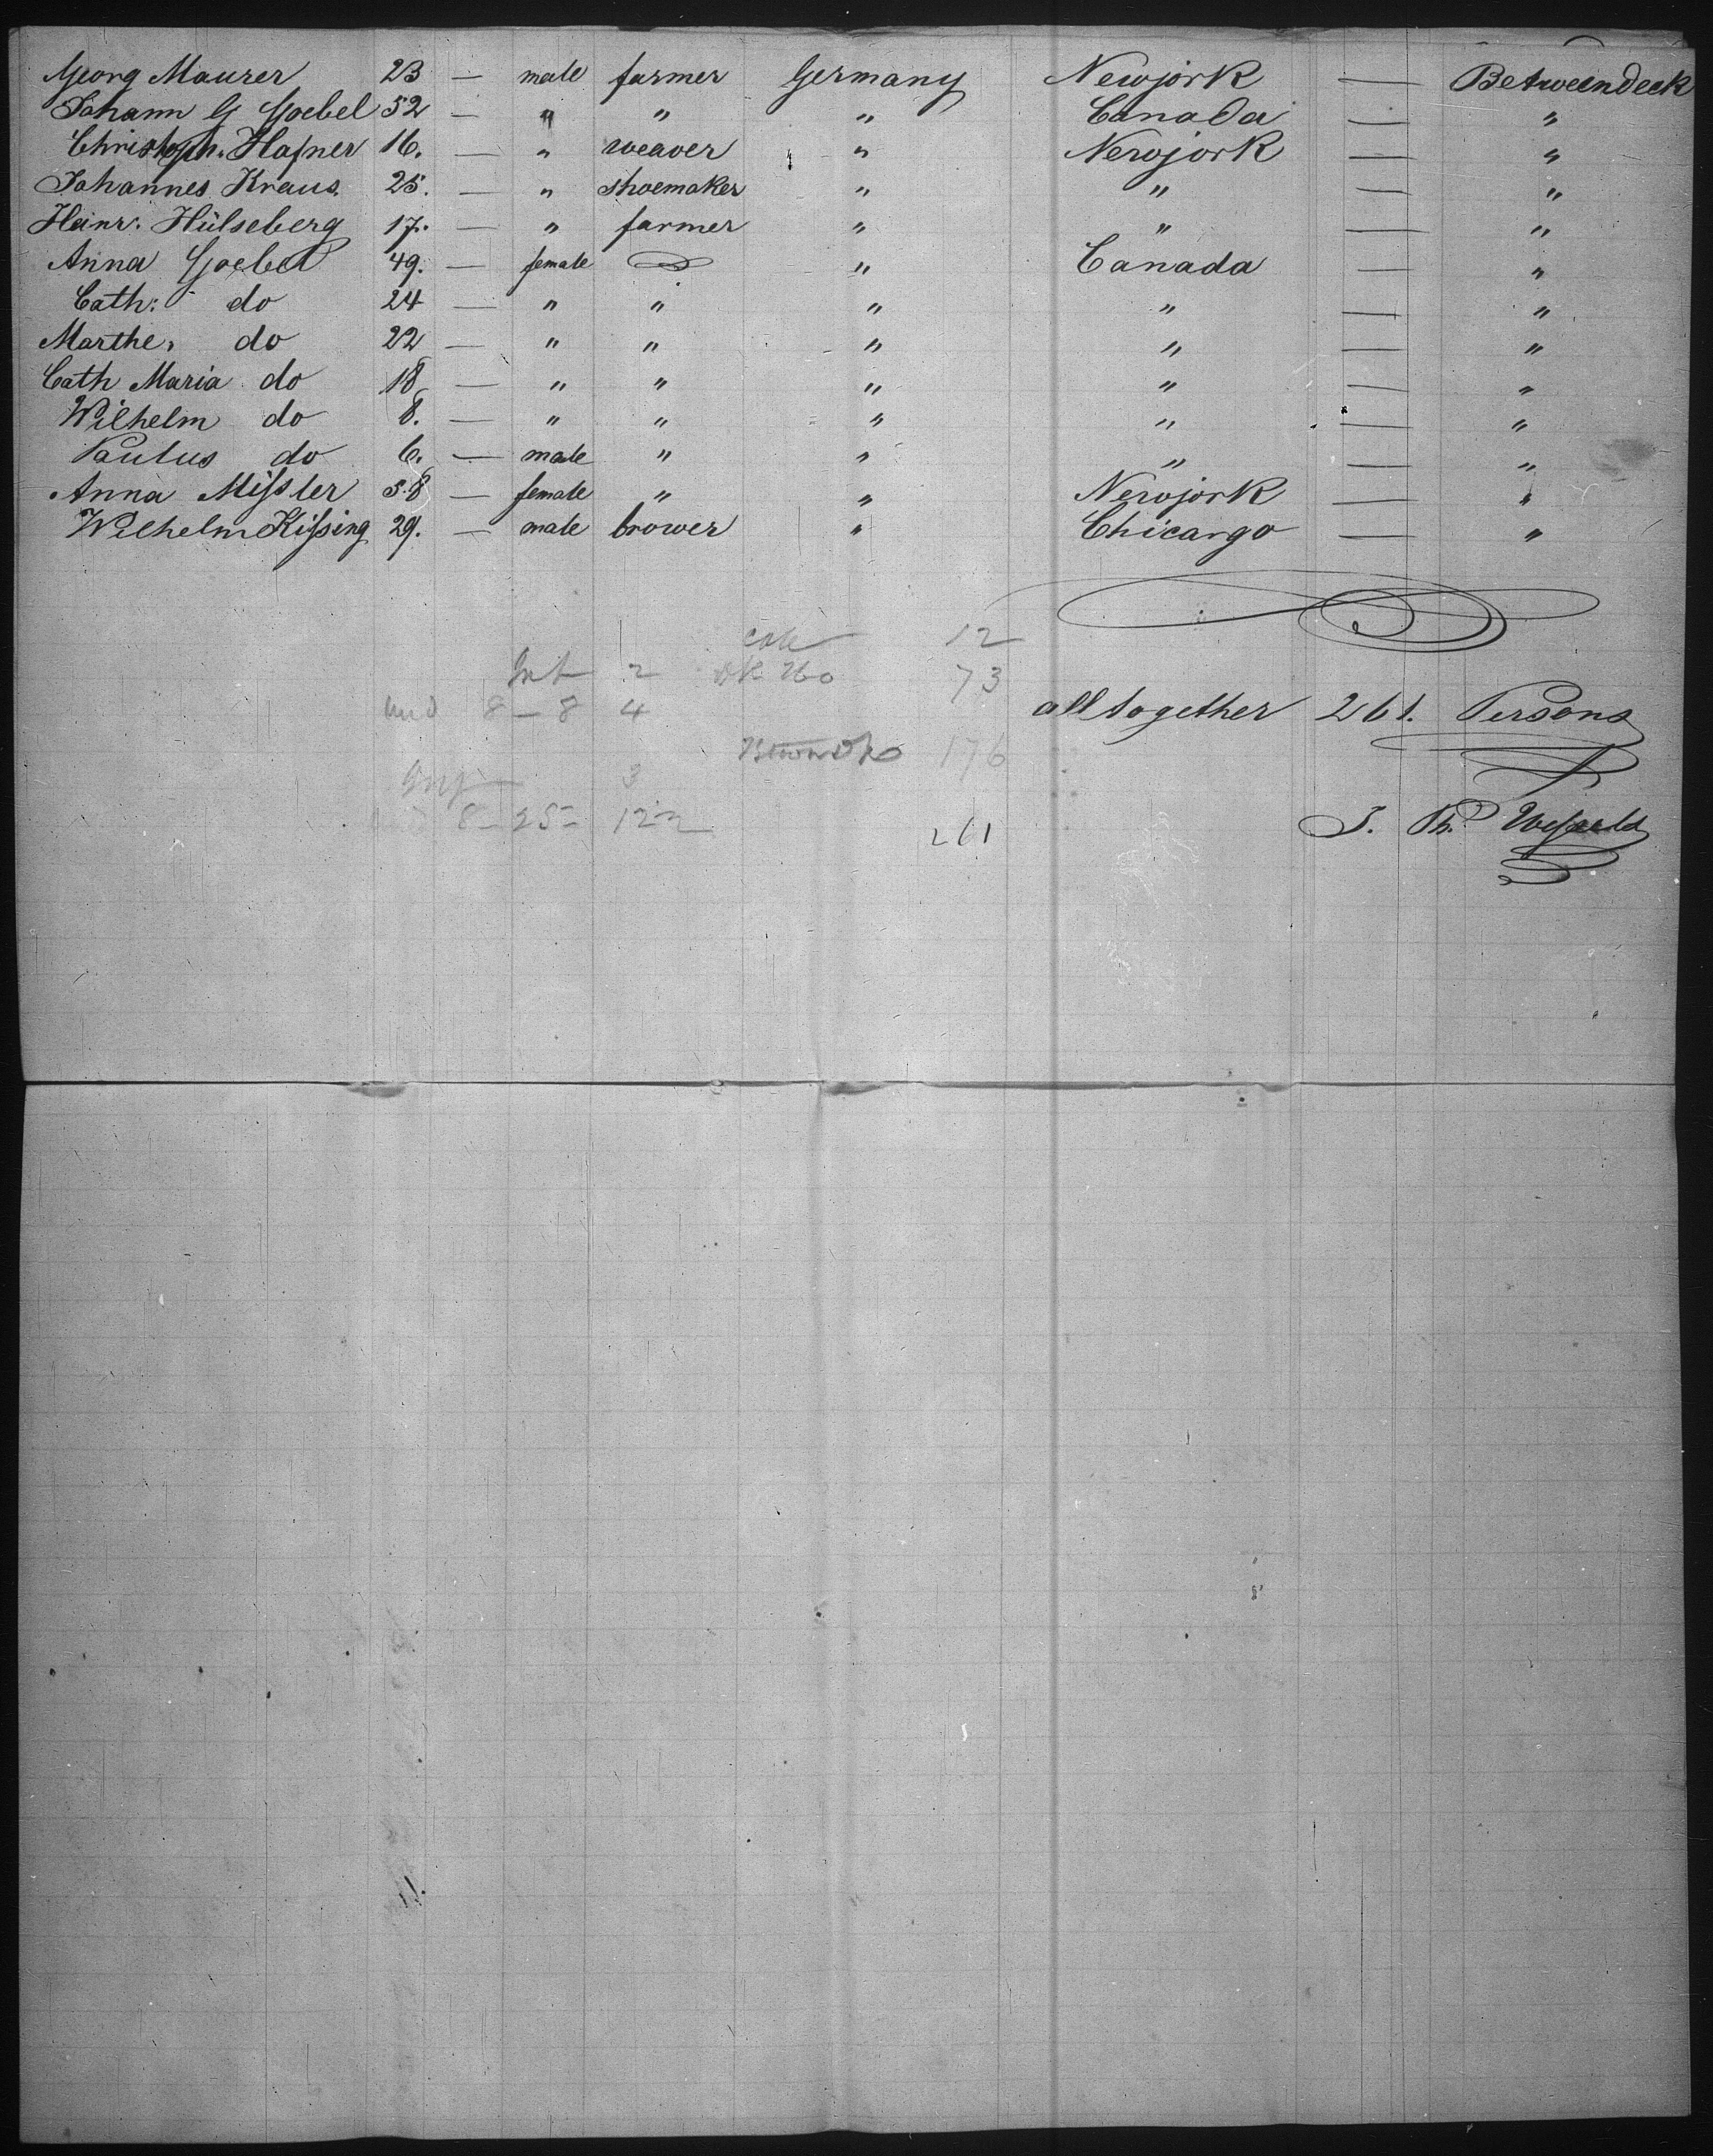 Georg Maurer 23 — male farmer Germany Newjork — Betweendeck
Johann G Goebel 52 — " " " Canada — "
Christoph. Hafner 16. — " weaver " Newjork — "
Johannes Kraus. 25. — " shoemaker " " — "
Heinr. Hülseberg 17. — " farmer " " — "
Anna Goebel 49. — female " Canada — "
Cath: do 24 — " " " " — "
Marthe. do 22 — " " " " — "
Cath Maria do 18 — " " " " — "
Wilhelm do 8. — " " " " — "
Paulus do 6. — male " " " — "
Anna Mißler 58 — female " " Newjork — "
Wilhelm Kißing 29. — male brower " Chicargo — "
12
2 73
8 – 8 4
all together 261. Persons
176
3
8 – 25 – 122
261
J. Th.